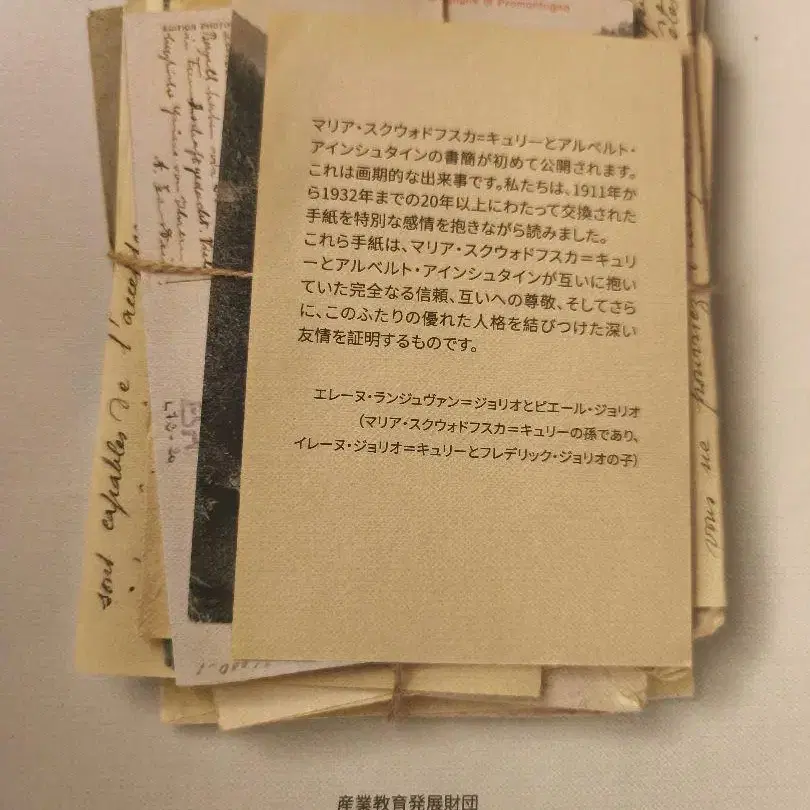 EDITION PHOTO
Promontogno
マリア・スクウォドフスカ=キュリーとアルベルト・
アインシュタインの書簡が初めて公開されます。
これは画期的な出来事です。私たちは、1911年か
ら1932年までの20年以上にわたって交換された
手紙を特別な感情を抱きながら読みました。
これら手紙は、マリア・スクウォドフスカ=キュリ
ーとアルベルト・アインシュタインが互いに抱い
ていた完全なる信頼、互いへの尊敬、そしてさら
に、このふたりの優れた人格を結びつけた深い
友情を証明するものです。
エレーヌ・ランジュヴァン=ジョリオとピエール・ジョリオ
(マリア・スクウォドフスカ=キュリーの孫であり、
イレーヌ・ジョリオ=キュリーとフレデリック・ジョリオの子)
sont capables de l'
vous me
産業教育発展財団